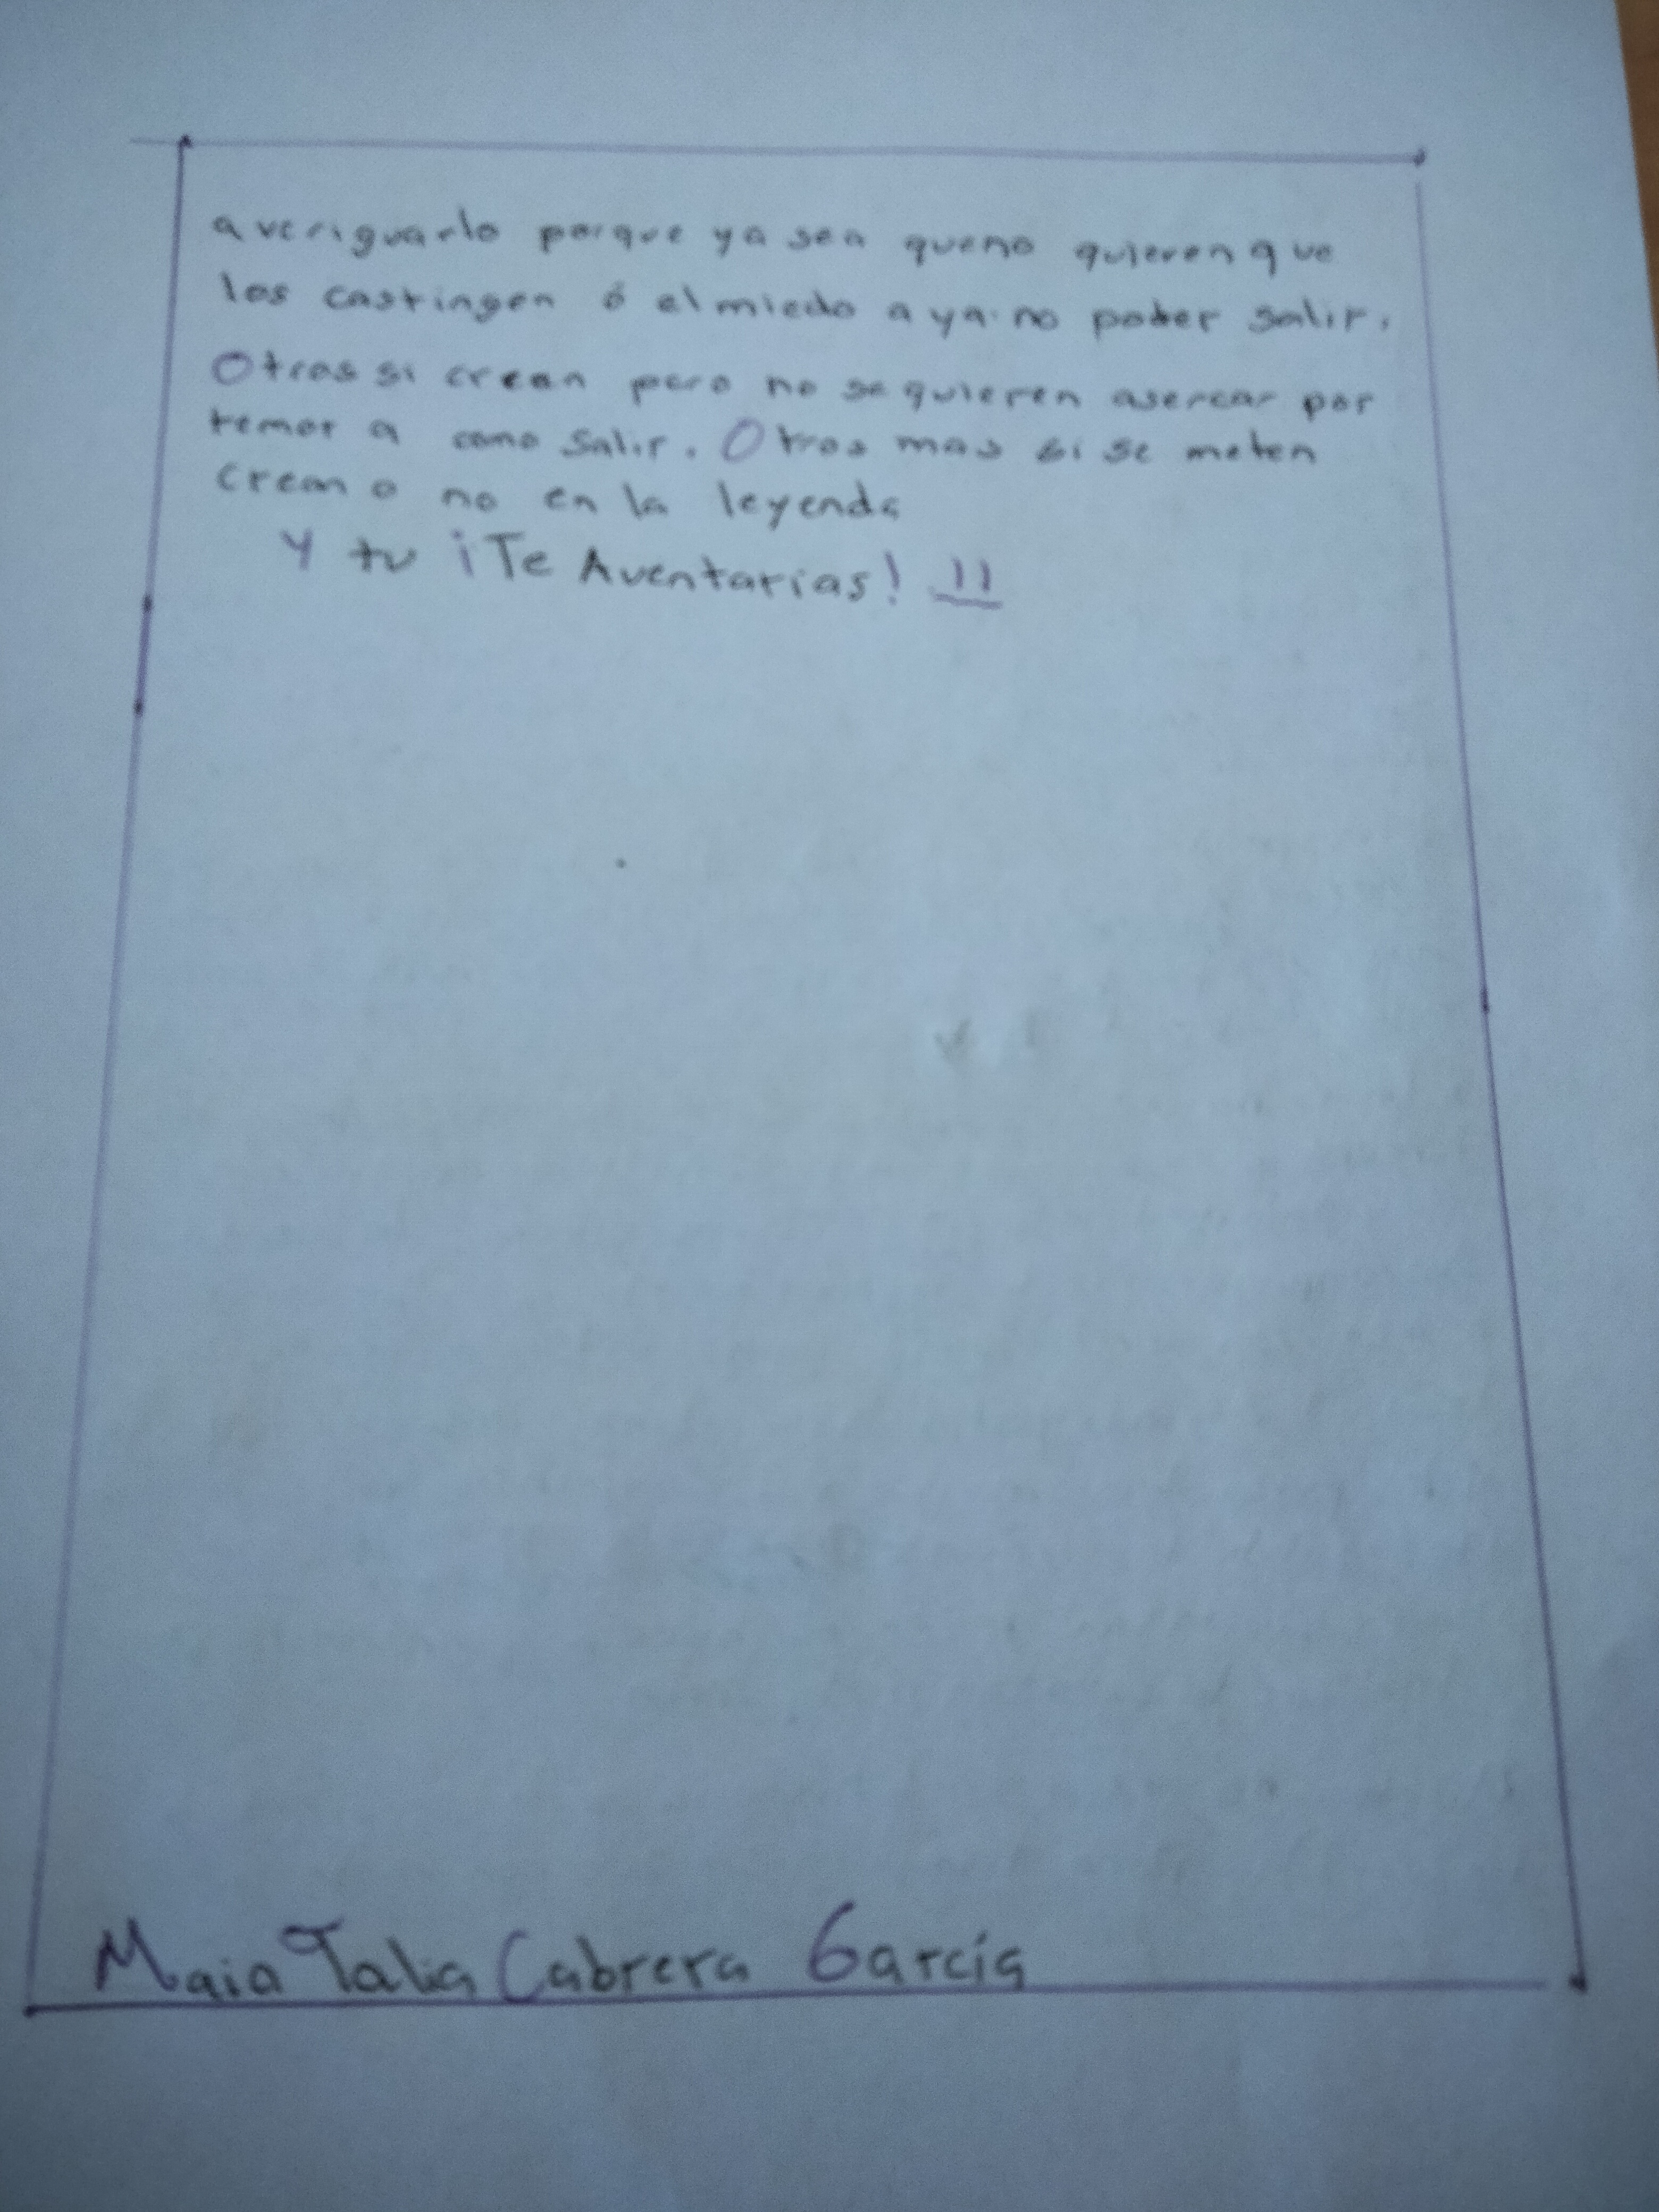 averiguarlo porque ya sea queno quieren que
los castingen ó el miedo a ya no poder salir.
Otras si crean pero no se quieren asercar por
temor a como salir. Otros mas si se meten
crean o no en la leyenda
Y tu ¡Te Aventarías! JJ
Maia Talia Cabrera García